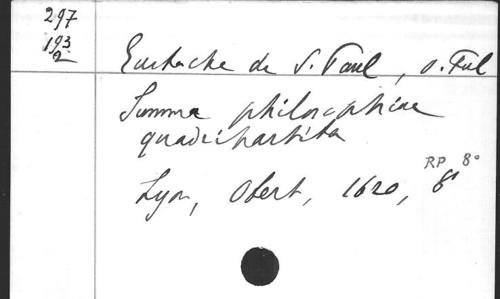 297
193
2
Eustache de S. Paul, o. Ful
Summa philosophiae
quadripartita
Lyon, Obert, 1620, 8°
RP 8°